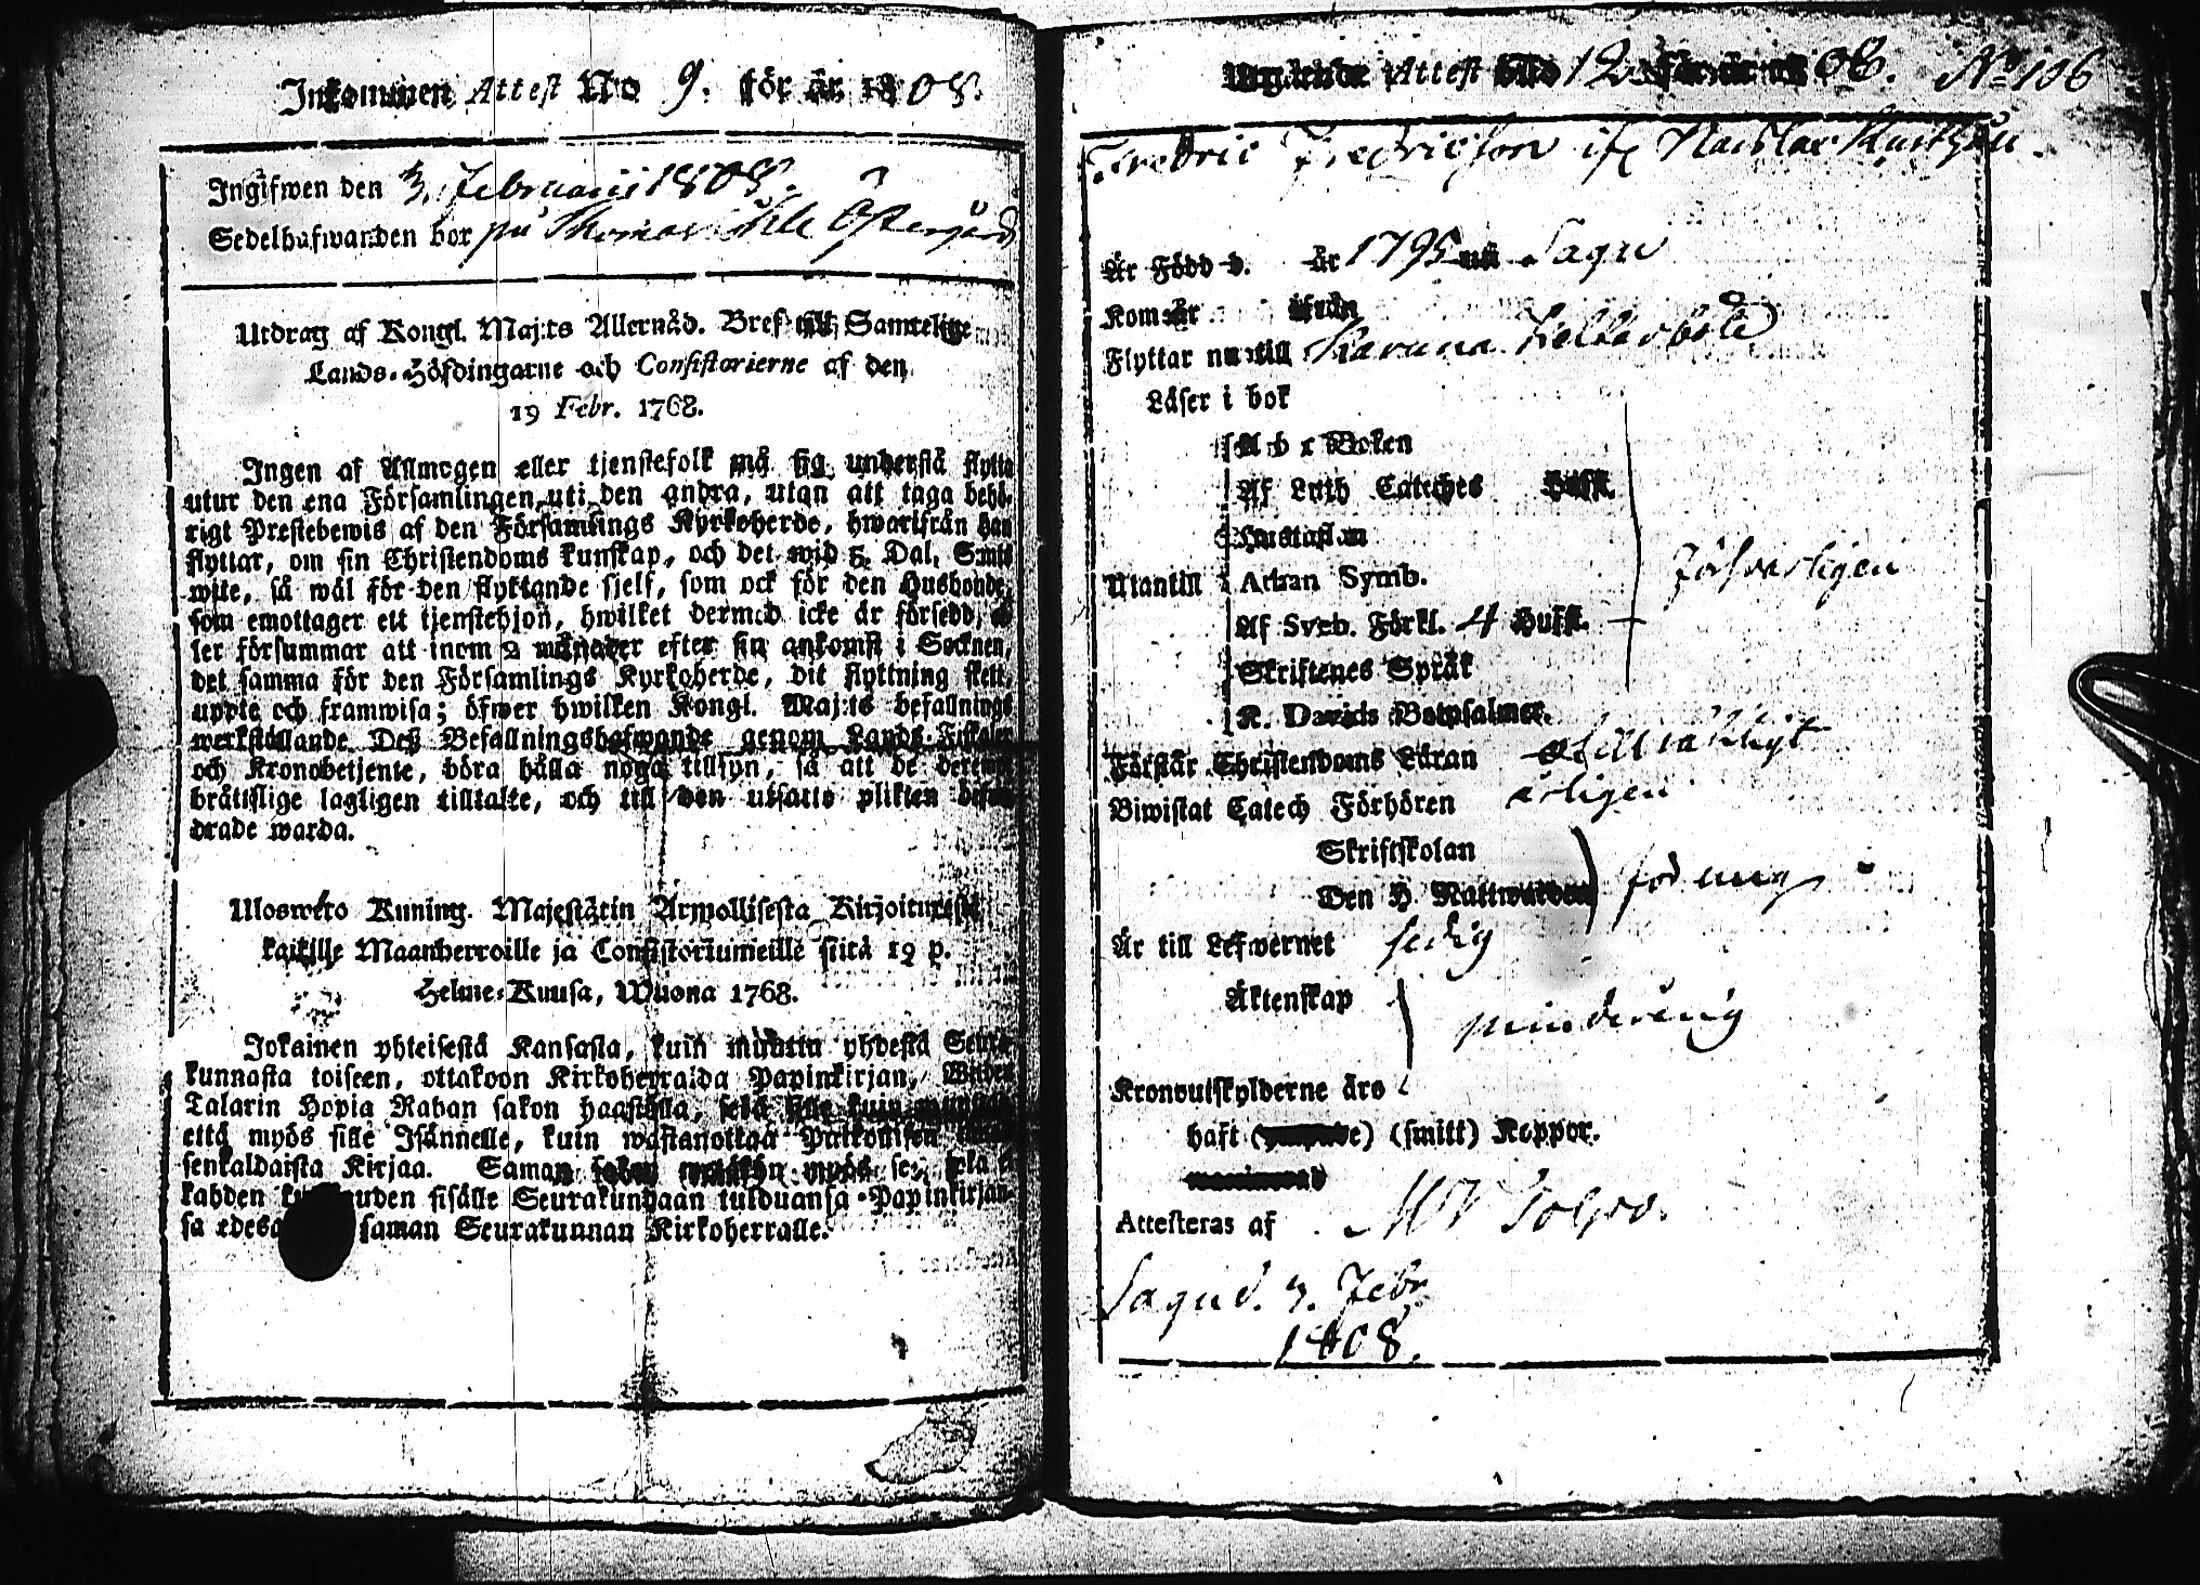 Inkommen Attest No 9. för år 1808.
Ingifwen den 3. Februarii 1808.
Sedelhafwanden bor på Östergård
Utdrag af Kongl. Maj:ts Allernåd. Bref till Samtelige
Lands-Höfdingarne och Consistorierne af den
19 Febr. 1768.
Ingen af Allmogen eller tjenstefolk må sig understå flytta
utur den ena Församlingen uti den andra, utan att taga behö-
rigt Prestebewis af den Församlings Kyrkoherde, hwarifrån han
flyttar, om sin Christendoms kunskap, och det wid 5. Dal. S:mts
wite, så wäl för den flyktande sjelf, som ock för den Husbonde,
som emottager ett tjenstehjon, hwilket dermed icke är försedd, el-
ler försummar att inom 2 månader efter sin ankomst i Socknen,
det samma för den Församlings Kyrkoherde, dit flyttning skett,
uppte och framwisa; öfwer hwilken Kongl. Maj:ts befallnings
werkställande Deß Befallningshafwande genom Lands-Fiskaler
och Kronobetjente, böra hålla noga tillsyn, så att de
brättslige lagligen tilltalte, och till den utsatte plikten befor-
drade warda.
Uloswéto Kuning. Majestätin Armollisesta Kirjoituxesta
kaikille Maanherroille ja Consistoriumeille siitä 19 p.
Helme-Kuusa, Wuona 1768.
Jokainen yhteisestä Kansasta, kuin muutta yhdestä Seura-
kunnasta toiseen, ottakoon Kirkoherralda Papinkirjan, Wiiden
Talarin Hopia Rahan sakon haastolla, sekä sille kuin
että myös sille Isännelle, kuin wastanottaa Palkollisen
senkaldaista Kirjaa. Saman sakon myös se, joka ei
kahden kuukauden sisälle Seurakundaan tulduansa Papinkirjan-
sa edesa saman Seurakunnan Kirkoherralle.
Utgående Attest No 12 för år 1808. No 106
Fredric Fredricson ifr.
Är Född d. år 1795 uti Sagu
Kom år ifrån
Flyttar nu till Karuna
Läser i bok
A b c Boken
Af Luth Cateches Hufst.
Hustaflan
Utantill Athan Symb.
Af Sveb. Förkl. 4 Hufst.
försvarligen
Skriftenes Språk
K. Davids Botpsalmer.
Förstår Christendoms Läran
Biwistat Catech Förhören årligen
Skriftskolan
Den H. Nattwarden för ung
Är till Lefwernet sedig
Äktenskap
minderårig
Kronoutskylderne äro
haft (smitt) Koppor.
Attesteras af
Sagu d. 3. Febr.
1808.